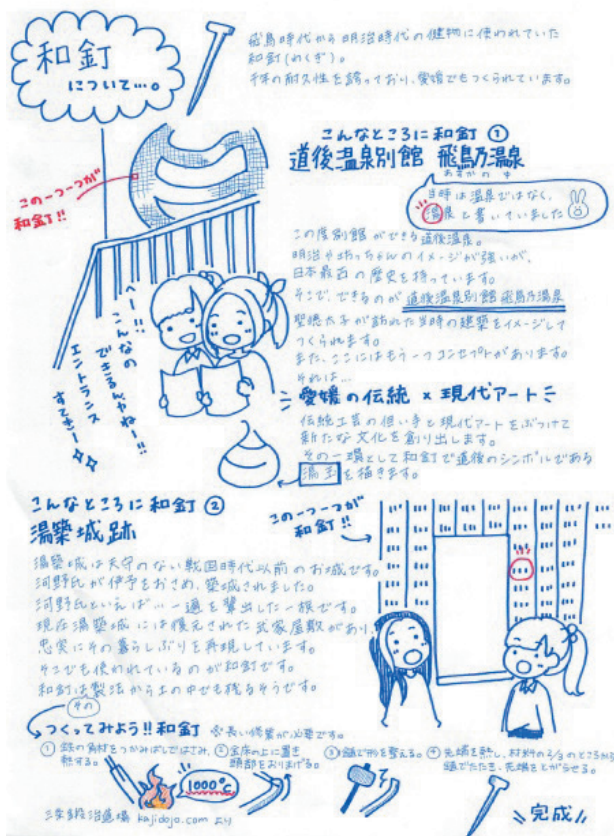 和釘
について…。
飛鳥時代から明治時代の建物に使われていた
和釘(わくぎ)。
千年の耐久性を誇っており、愛媛でもつくられています。
この一つ一つが
和釘!!
こんなところに和釘①
道後温泉別館 飛鳥乃温泉
あすかのゆ
当時は温泉ではなく、
湯泉と書いていました
この度別館ができる道後温泉。
明治や坊っちゃんのイメージが強いが、
日本最古の歴史を持っています。
そこで、できるのが道後温泉別館飛鳥乃温泉
聖徳太子が訪れた当時の建築をイメージして
つくられます。
また、ここにはもう一つコンセプトがあります。
それは…
愛媛の伝統×現代アート
伝統工芸の担い手と現代アートをぶつけて
新たな文化を創り出します。
その一環として和釘で道後のシンボルである
湯玉を描きます。
へー!!
こんなの
できるんやねー!!
エントランス
すてきー
こんなところに和釘②
湯築城跡
この一つ一つが
和釘!!
湯築城は天守のない戦国時代以前のお城です。
河野氏が伊予をおさめ、築城されました。
河野氏といえば…一遍を輩出した一根です。
現在湯築城には復元された武家屋敷があり、
忠実にその暮らしぶりを再現しています。
そこでも使われているのが和釘です。
和釘は製法から土の中でも残るそうです。
その
つくってみよう!!和釘 ※長い修業が必要です。
①鉄の角材をつかみばしではさみ、
熱する。
1000℃
②金床の上に置き
頭部をおりまげる。
③鎚で形を整える。
④先端を熱し、材料の3/3のところから
鎚でたたき、先端をとがらせる。
三条鍛冶道場 kajidojo.comより
完成